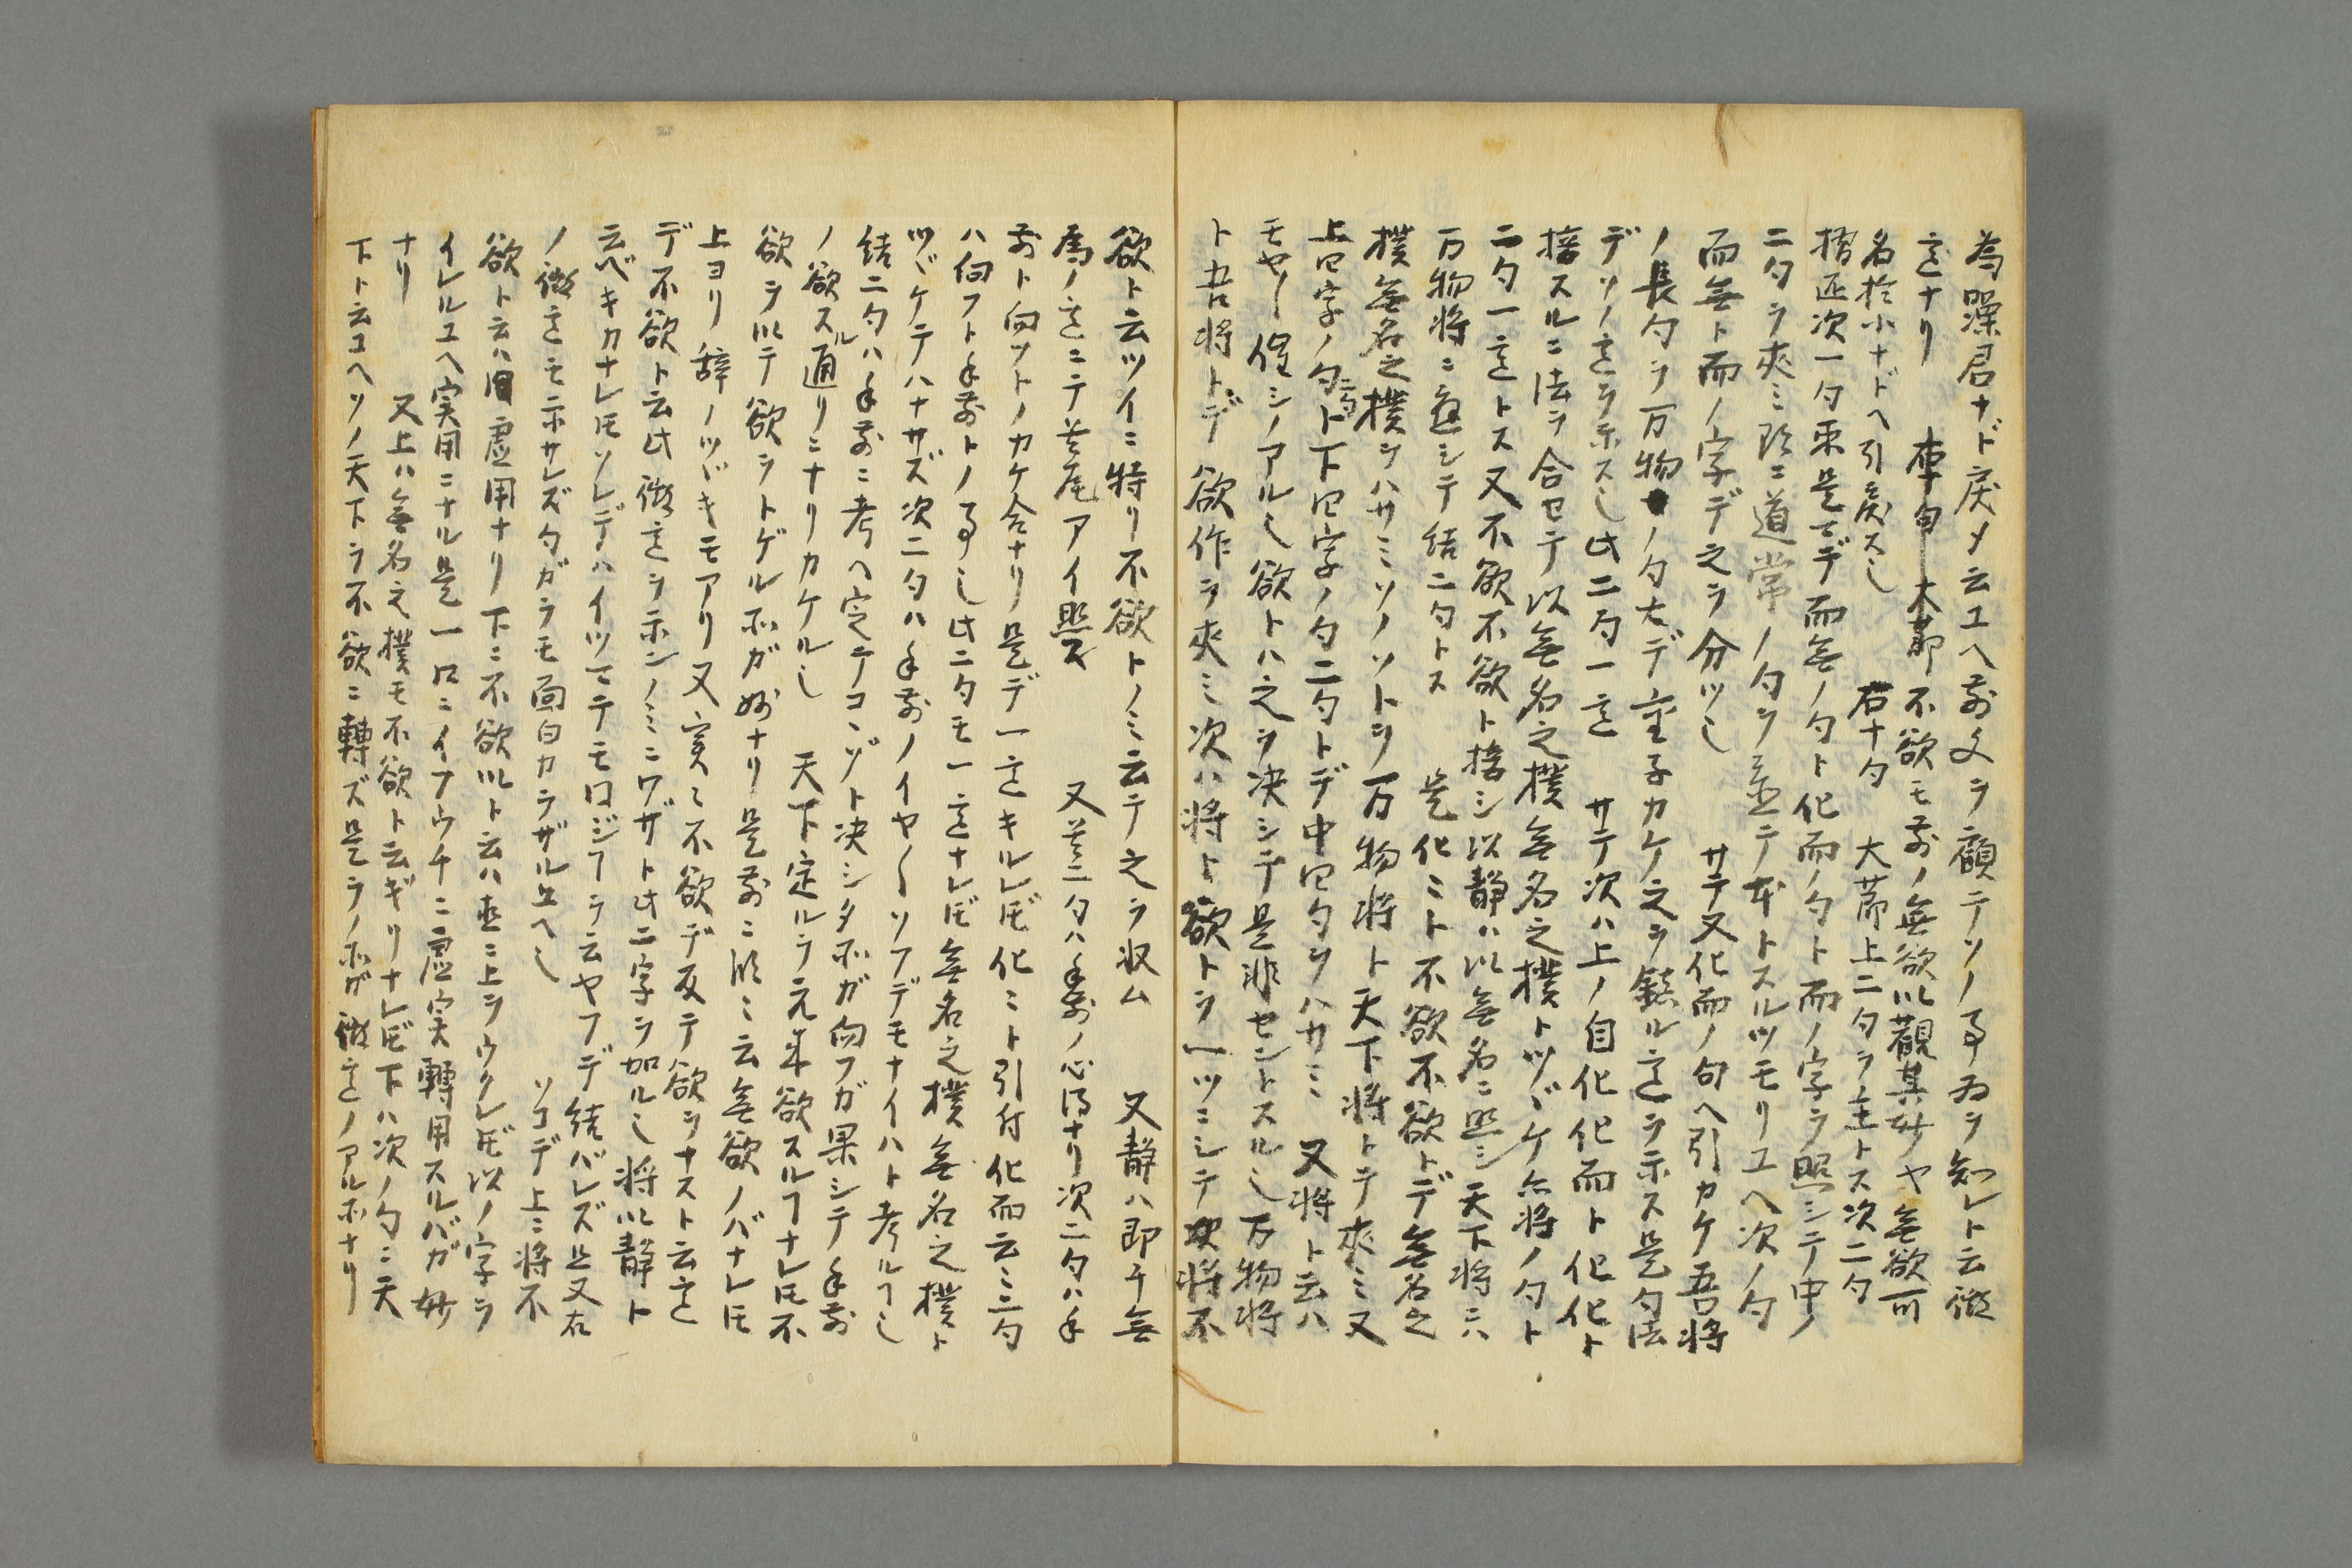 為躁君ナド戻メ云ユヘ前文ヲ顧テソノヿヲ知レト云微
意ナリ 大節不欲モ前ノ無欲以觀其妙ヤ無欲可
名於小ナドヘ引戻ス 右十句 大節上二句ヲ主トス次二句
次一句 是マデ而無ノ句ト化而ノ句ト而ノ字ヲ照シテ中ノ
二句ヲ夾ミ 道常ノ句ヲ並テ本トスルツモリユヘ次ノ句
而無ト而ノ字デ之ヲ分ツ サテ又化而ノ句ヘ引カケ吾將
ノ長句ヲ万物ノ句 カケ之ヲ鎮ル意ヲ示ス是句法
デソノ意ヲ示ス 此二句一意 サテ次ハ上ノ自化化而ト化化ト
接スルニ法ヲ合セテ以無名之樸無名之樸トツヾケ 將ノ句ト
二句一意トス又不欲不欲ト接シ以靜ハ以無名ニ照シ天下將ニハ
万物將ニ應シテ結二句トス 是化ミト不欲不欲トデ無名之
樸無名之樸ヲハサミソノソトヲ万物將ト天下將トテ夾ミ又
上四字ノ句二ツト下四字ノ句二句トデ中四句ヲハカミ 又將ト云ハ
モヤ〳〵催シノアル 欲トハ之ヲ決シテ是非セントスル 万物將
ト吾將トデ欲作ヲ夾ミ次ハ將ト欲トヲ一ツミシテ 將不
欲ト云ツイニ特リ不欲トノミ云テ之ヲ収ム 又靜ハ即チ無
為ノ意ニテ首尾アイ照ス 又首二句ハ手前ノ心得ナリ次二句ハ手
前ト向フトノカケ合ナリ是デ一意キルレ𪜈化ミト引付化而云ミ三句
ハ向フト手前トノヿ 此二句モ一意ナレ𪜈無名之樸無名之樸ト
ツヾケテハナサズ次二句ハ手前ノイヤ〳〵ソフデモナイハト考ルヿ
結二句ハ手前ニ考ヘ定テコヽゾト決シタ所ガ向フガ果シテ手前
ノ欲スル通リニナリカケル 天下定ルヲ元来欲スルヿナレ𪜈不
欲ヲ以テ欲ヲトゲル所ガ妙ナリ是前ニ 云無欲ノバナレ𪜈
上ヨリ辞ノツヾキモアリ又實ニ不欲デ反テ欲ヲナスト云意
デ不欲ト云此微意ヲ示ンノミニワザト此二字ヲ加ル 將以靜ト
云ベキカナレ𪜈ソレデハイツマテモ同ジヿヲ云ヤフデ結バレズ且又右
ノ微意モ示サレズ句ガラモ面白カラザルユヘ ソコデ上ニ將不
欲ト云ハ虚用ナリ下ニ不欲以ト云ハ直ニ上ヲウクレ𪜈以ノ字ヲ
イレルユヘ実用ニナル是一口ニイフウチニ虚実轉用スルバガ妙
ナリ 又上ハ無名之樸モ不欲ト云ギリナレ𪜈下ハ次ノ句ニ天
下ト云ユヘソノ天下ヲ不欲ニ轉ズ是ラノ所ガ微意ノアル所ナリ